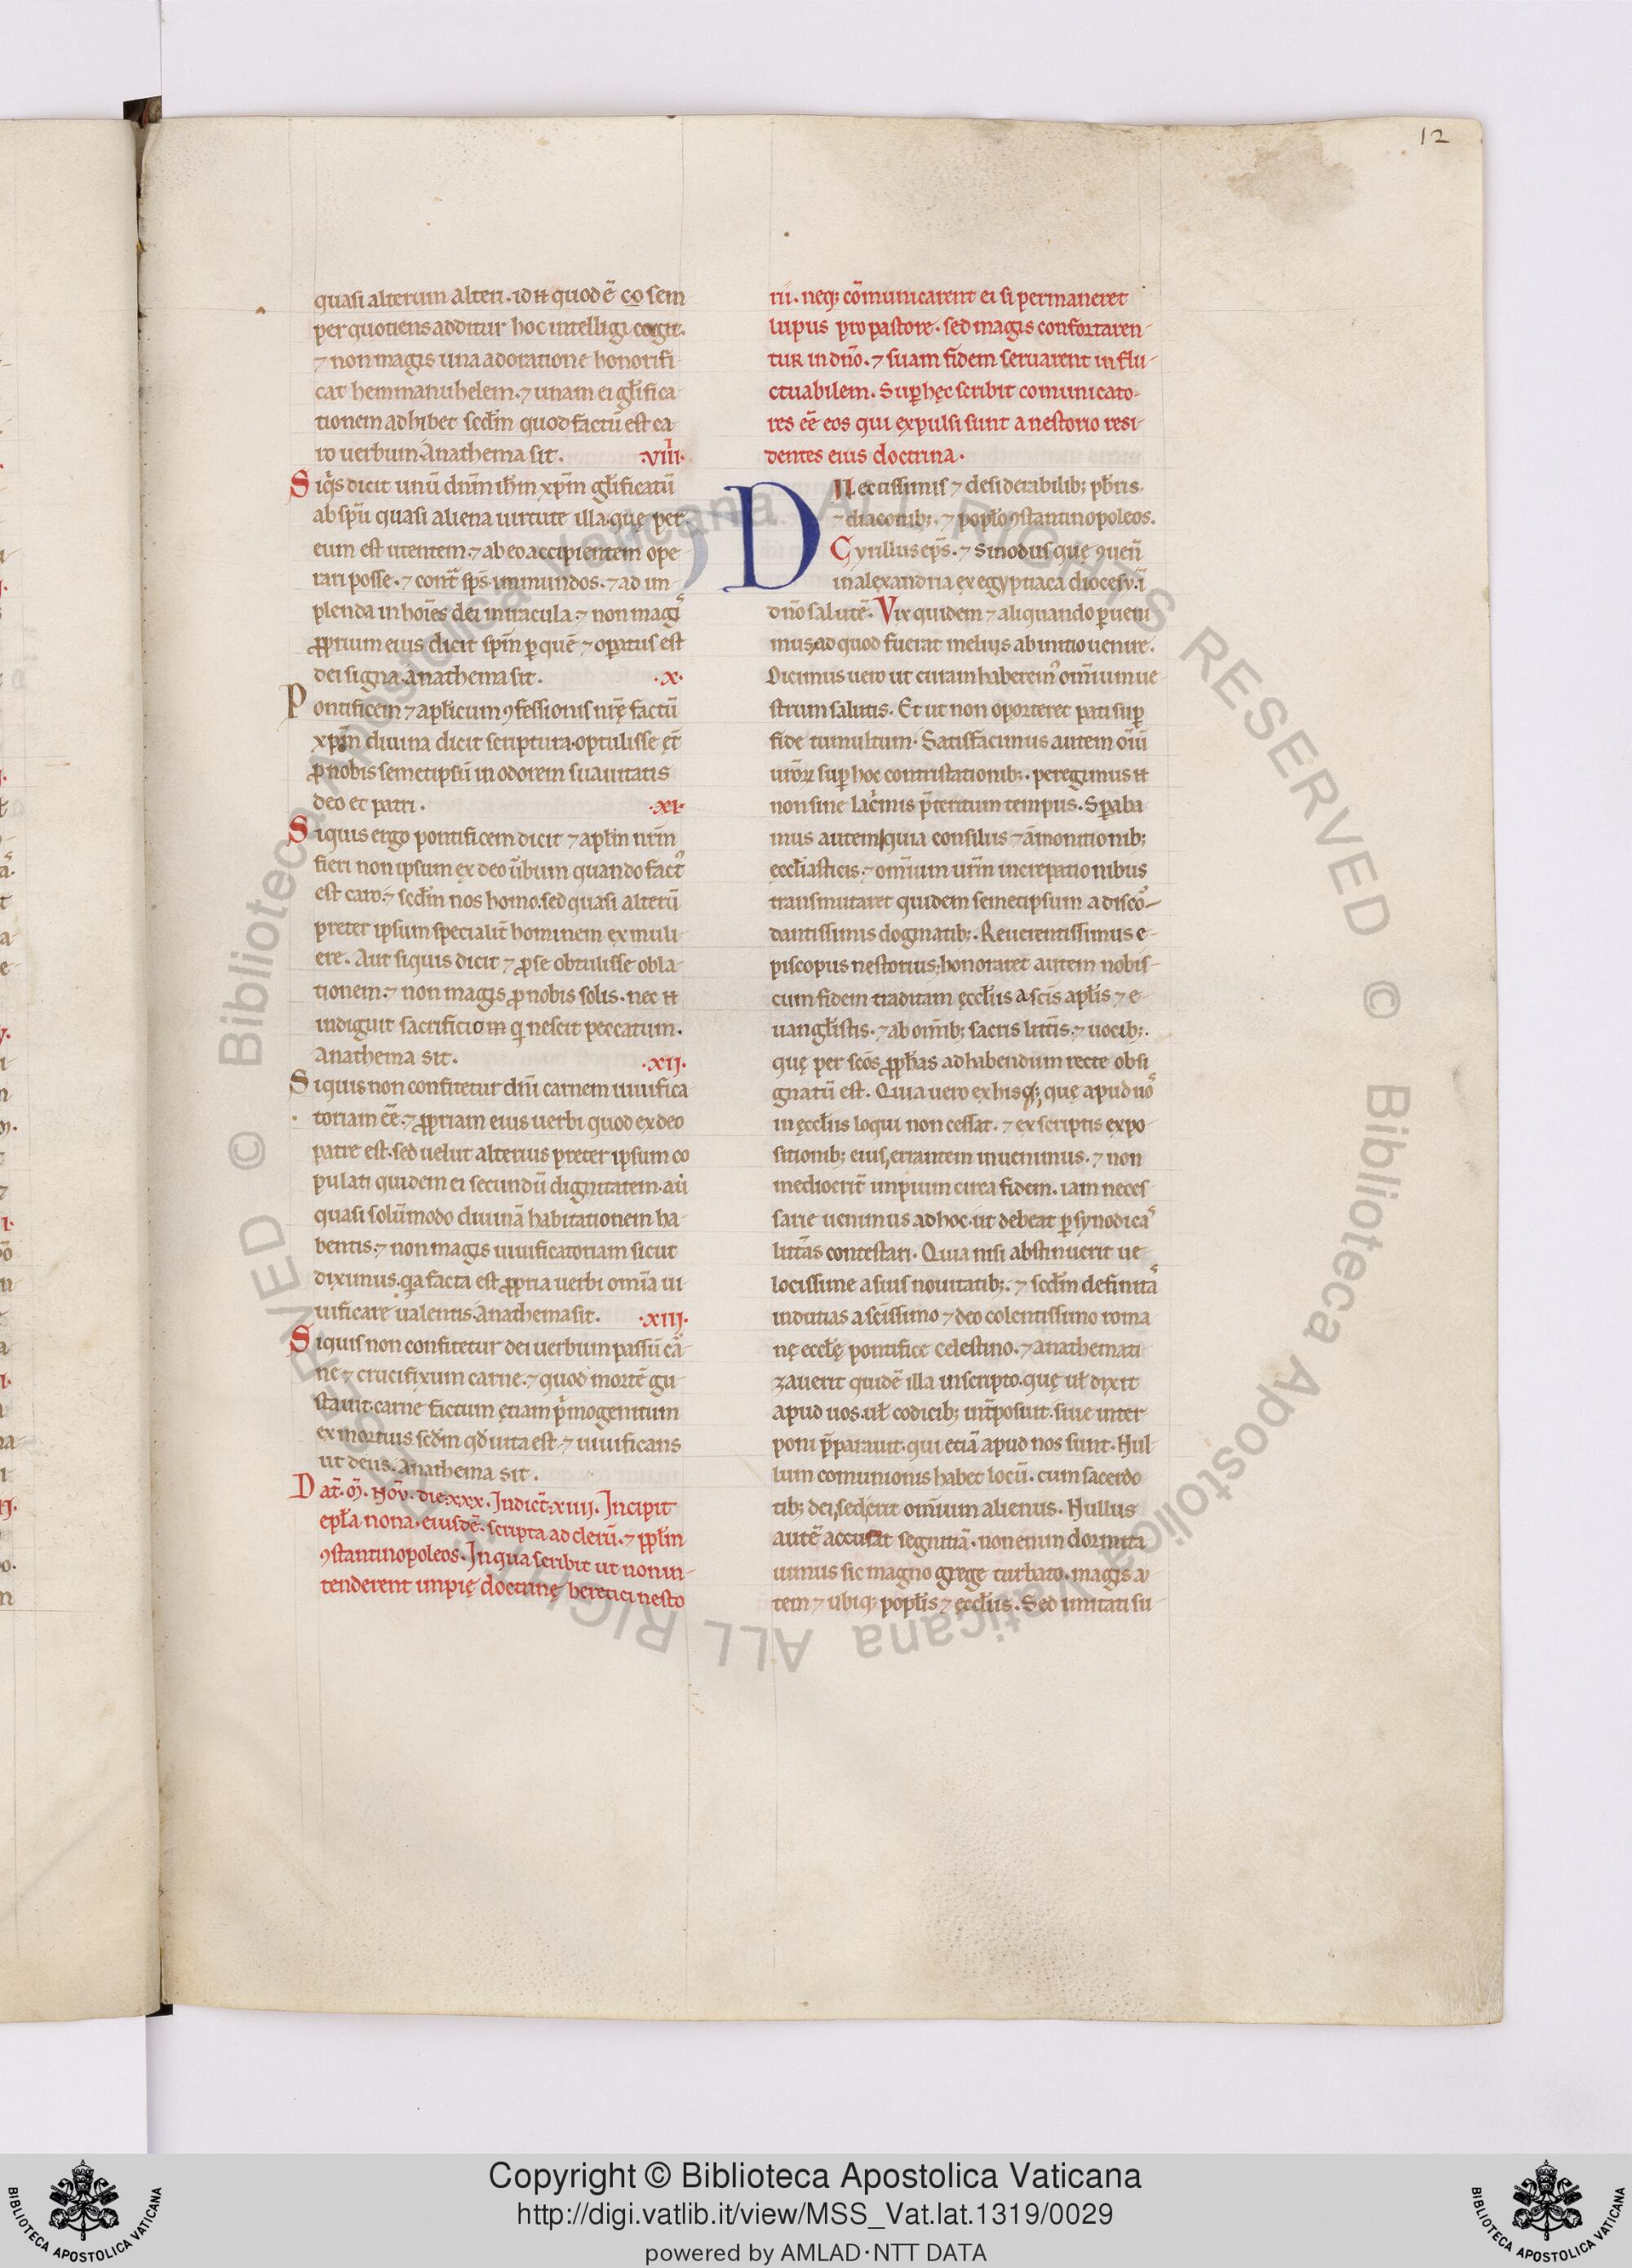 12
quasi alterum alteri. id n̄ quod ē co sem
per quotiens additur hoc intelligi cogit.
⁊ non magis una adoratione honorifi
cat hemmanuhelem. ⁊ unam ei gl̄ifica
tionem adhibet scd̄m quod factū est ca
ro uerbum. Anathema sit. .viiii.
Siq̄s dicit unū dn̄m ih̄m xp̄m gl̄ificatū
ab sp̄u quasi aliena uirtute illa. quę per
eum est utentem. ⁊ ab eo accipientem ope
rari posse. ⁊ cont̄ sp̄s immundos. ⁊ ad im
plenda in hoīes dei miracula. ⁊ non magis
ꝓprium eius dicit sp̄m ꝑ quē ⁊ oꝑatus est
dei signa. anathema sit. .x.
Pontificem ⁊ apl̄icum ꝯfessionis nr̄ę factū
xp̄m diuina dicit scriptura. optulisse et̄
ꝓ nobis semetipsū in odorem suauitatis
deo et patri. .xi.
Siquis ergo pontificem dicit ⁊ apl̄m nr̄m
fieri non ipsum ex deo ūbum quando fact᾿
est caro. ⁊ scd̄m nos homo. sed quasi alterū
preter ipsum specialit̄ hominem ex muli
ere. Aut siquis dicit ⁊ ꝓ se obtulisse obla
tionem. ⁊ non magis ꝓ nobis solis. nec n̄
indiguit sacrificiom q̄ nescit peccatum.
Anathema sit. .xij.
Siquis non confitetur dn̄i carnem uiuifica
toriam eē. ⁊ ꝓpriam eius uerbi quod ex deo
patre est. sed uelut alterius preter ipsum co
pulati quidem ei secundū dignitatem. aū
quasi solūmodo diuinā habitationem ha
bentis. ⁊ non magis uiuificatoriam sicut
diximus. qa facta est ꝓpria uerbi omīa ui
uificare ualentis. Anathema sit. .xiij.
Siquis non confitetur dei uerbum passū cā
ne ⁊ crucifixum carne. ⁊ quod mortē gu
stauit carne. fictum etiam p̄mogenitum
ex mortuis scd̄m qd̄ uita est. ⁊ uiuificans
ut deus. Anathema sit.
Dat̄. m̄. Nov̄. die. xxx. Indict̄. xiiij. Incipit
epl̄a nona. eiusdē. scripta ad clerū. ⁊ ppl̄m
ꝯstantinopoleos. In qua scribit ut non in
tenderent impię doctrinę heretici nesto
rii. neq; cōmunicarent ei si permaneret
lupus pro pastore. sed magis confortaren
tur in dn̄o. ⁊ suam fidem seruarent in flu
ctuabilem. Suꝑ hęc scribit comunicato
res eē eos qui expulsi sunt a nestorio resi
dentes eius doctrina.
Dilectissimis ⁊ desiderabilib; pb̄ris.
⁊ diaconib;. ⁊ popl̄o ꝯstantinopoleos.
Cyrillus ep̄s. ⁊ sinodus quę ꝯuen̄
in alexandria ex egyptiaca diocesy. ī
dn̄o salutē. Vix quidem ⁊ aliquando ꝑueni
mus ad quod fuerat melius ab initio uenire.
Dicimus uero ut curam haberem᾿ omīum ue
strum salutis. Et ut non oporteret pati suꝑ
fide tumultum. Satisfacimus autem oīū
ur̄oꝝ suꝑ hoc contristationib;. peregimus n̄
non sine lac̄mis p̄teritum tempus. Sꝑaba
mus autem quia consiliis ⁊ āmonitionib;
eccl̄iasticis. ⁊ omīum ur̄m increpationibus
transmutaret quidem semetipsum a discō
dantissimis dogmatib;. Reuerentissimus e
piscopus nestorius. honoraret autem nobis
cum fidem traditam ęccl̄iis a sc̄is apl̄is ⁊ e
uangl̄istis. ⁊ ab omīb; sacris litt̄is. ⁊ uocib;.
quę per sc̄os ꝓph̄as ad habendum recte obsi
gnatū est. Quia uero ex hisq; quę apud uos
in ęccl̄iis loqui non cessat. ⁊ ex scriptis expo
sitionib; eius, errantem inuenimus. ⁊ non
mediocrit̄ impium circa fidem. iam neces
sarie uenimus ad hoc. ut debeat ꝑ synodicas
litt̄as contestari. Quia nisi abstinuerit ue
locissime a suis nouitatib;. ⁊ scd̄m definitas
indutias a sc̄issimo ⁊ deo colentissimo roma
nę eccl̄ę pontifice celestino. ⁊ anathemati
zauerit quidē illa inscripto. quę ul̄ dixit
apud uos. ul̄ codicib; int̄posuit. siue inter
poni p̄parauit. qui etiā apud nos sunt. Nul
lum comunionis habet locū. cum sacerdo
tib; dei, sed erit omīum alienus. Nullus
autē accusat segnitiā. non enim dormita
uimus sic magno grege turbato. magis a
tem ⁊ ubiq; popl̄is ⁊ ęccl̄iis. Sed imitati su
© Biblioteca Apostolica Vaticana ALL RIGHTS RESERVED © Biblioteca Apostolica Vaticana ALL RIGHTS RESERVED
Copyright © Biblioteca Apostolica Vaticana
http://digi.vatlib.it/view/MSS_Vat.lat.1319/0029
powered by AMLAD·NTT DATA
BIBLIOTECA APOSTOLICA VATICANA
BIBLIOTECA APOSTOLICA VATICANA